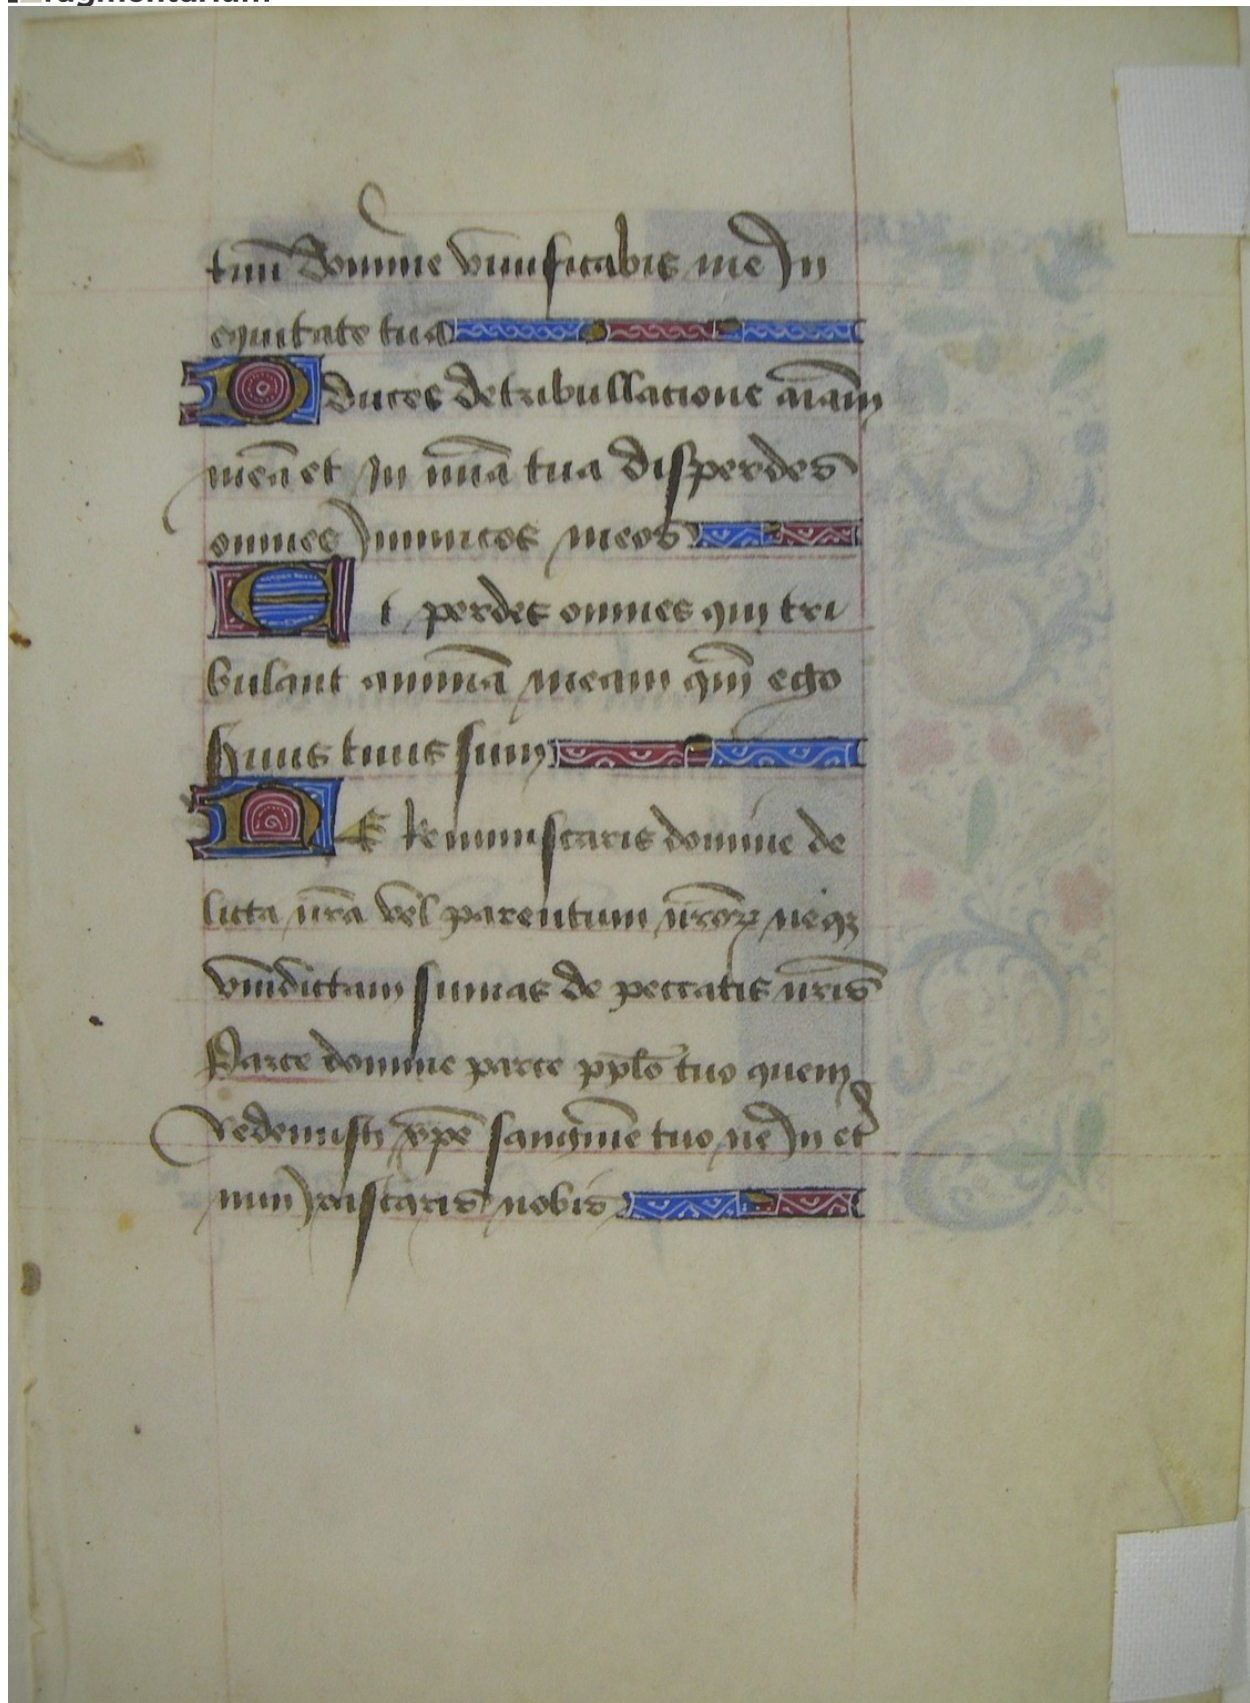 fragmentarium
tuū domine viuificabis me In
equitate tua
Educes de tribullacione aīam
meā et In mīā tua disperdes
omnes Inimicos meos
Et perdes omnes qui tri
bulant animā meam qm̄ ego
seruus tuus sum
NE Reminiscaris domine de
licta nr̄a vel parentum nr̄oꝝ neqꝫ
vindictam sumas de peccatis nr̄is
Parce domine parce pplo tuo quem
Redemisti xp̄e sanguine tuo ne In et
num Irascaris nobis